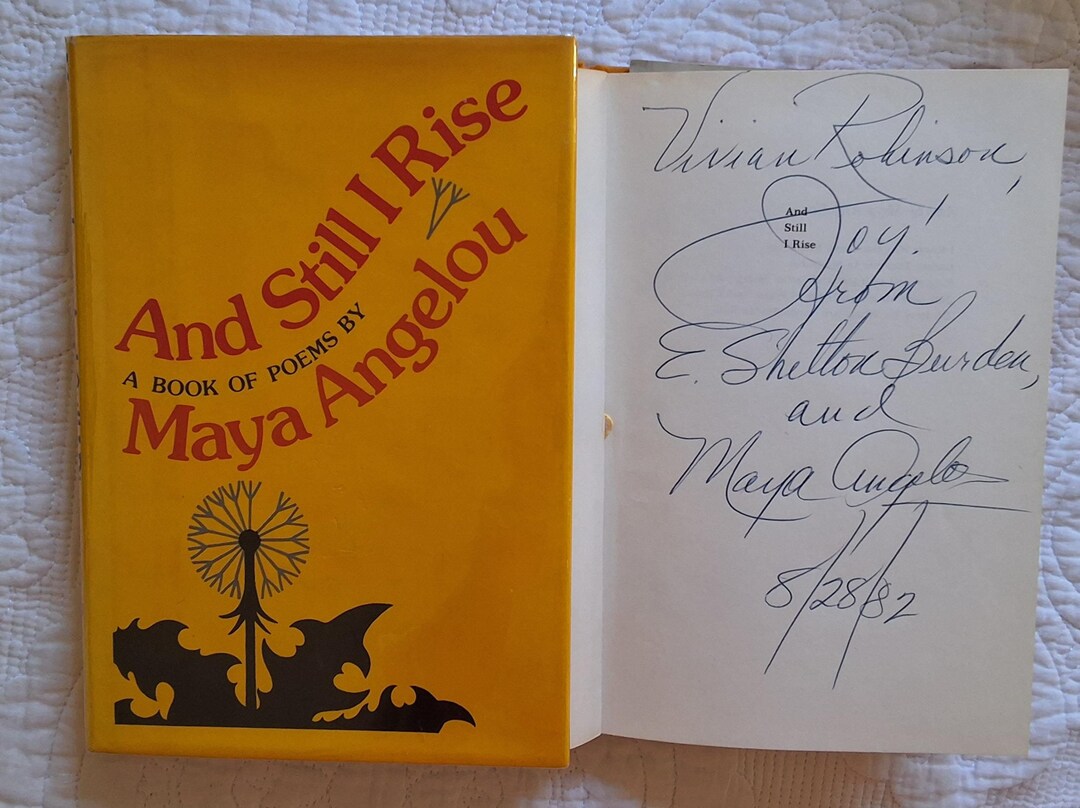 And Still I Rise
A BOOK OF POEMS BY
Maya Angelou
Vivian Robinson,
And
Still
I Rise
Joy!
from
E. Shelton Burden,
and
Maya Angelou
8/28/82